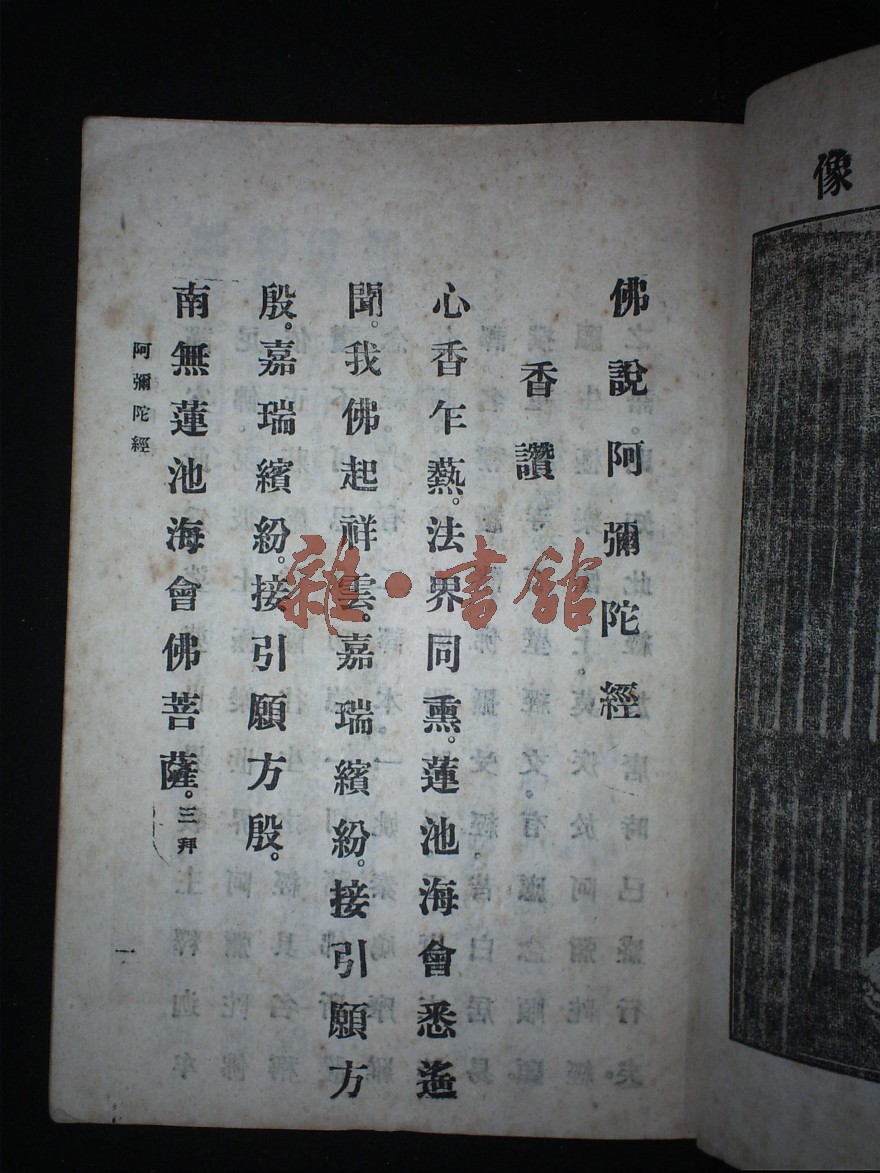 像
佛說阿彌陀經
香讚
心香乍爇。法界同熏。蓮池海會悉遙
聞。我佛起祥雲。嘉瑞繽紛。接引願方
殷。嘉瑞繽紛。接引願方殷。
南無蓮池海會佛菩薩。三拜
阿彌陀經
一
雜·書館